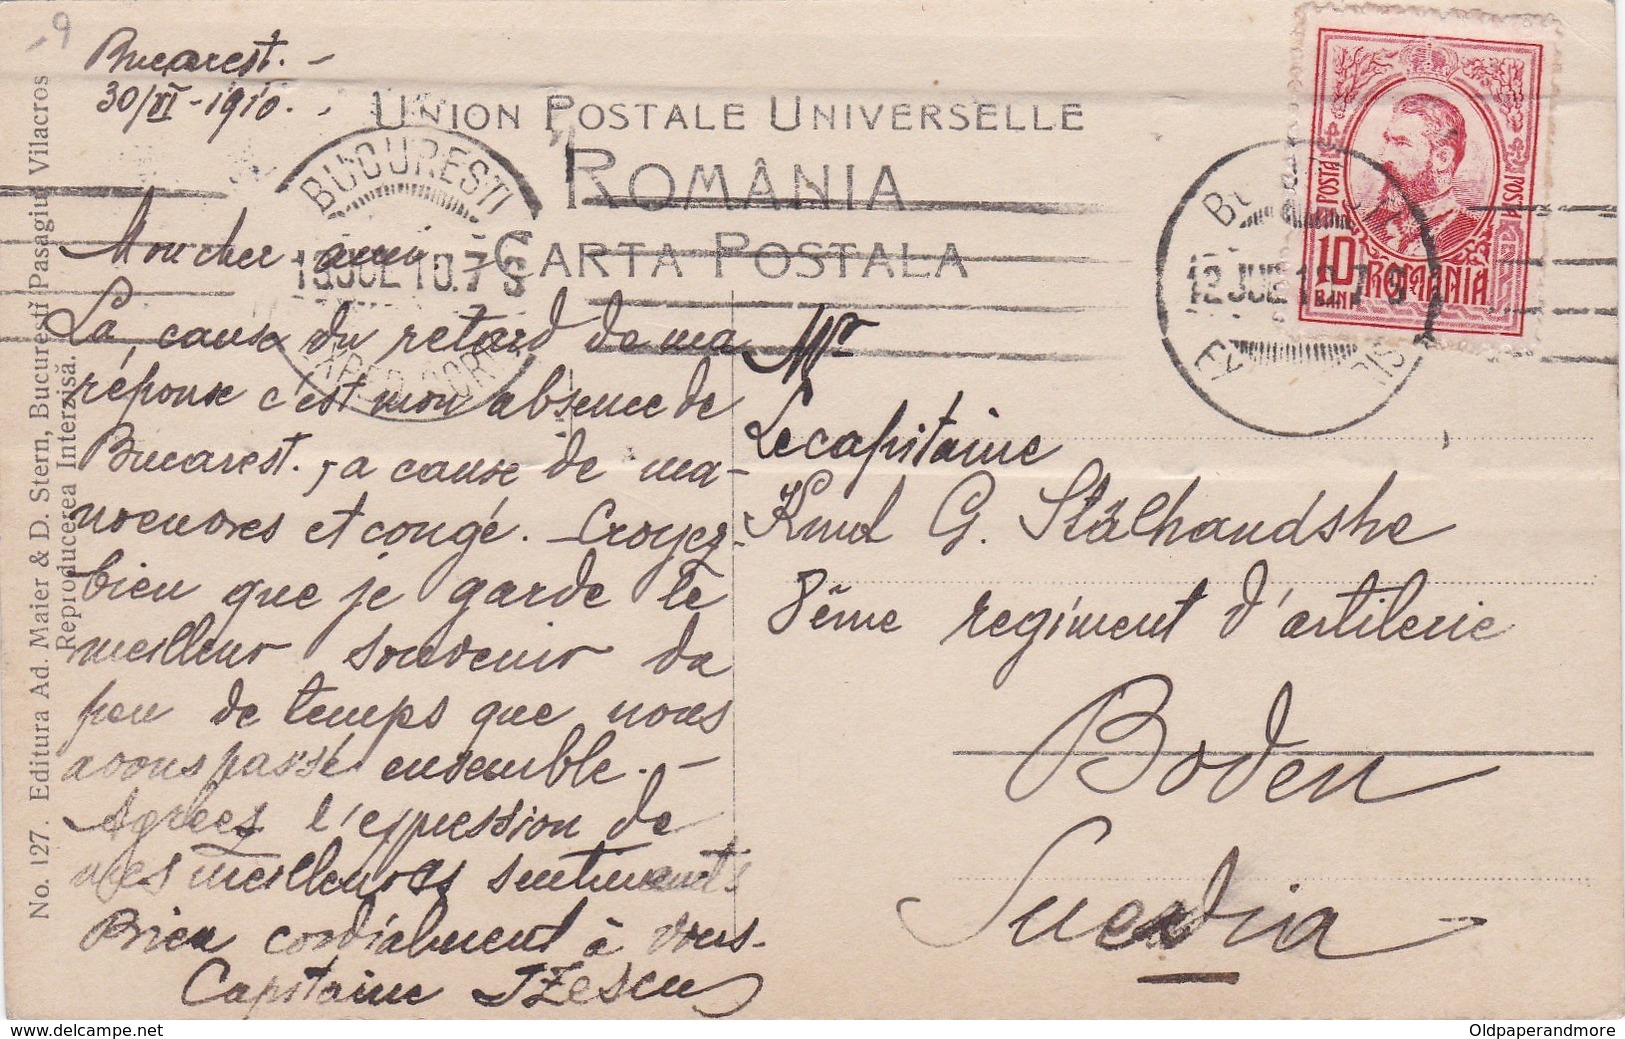 Bucarest. –
30/VI - 1910. –
UNION POSTALE UNIVERSELLE
ROMÂNIA
CARTA POSTALA
BUCURESTI
13 JUL 10. 7
12 JUL 10 7
POSTA
POSTA
10 ROMANIA
BANI
Mon cher ami. –
La, cause du retard de ma
réponse c'est mon absence de
Bucarest. , a cause de ma-
noeuvres et congé. – Croyez-
bien que je garde le
meilleur souvenir du
peu de temps que nous
avons passé ensemble. –
Agrées l'expression de
mes meilleures sentiments
Bien cordialment à vous-
Capitaine
Mr
Le capitaine
Knut G. Stålhandske
8ème regiment d'artilerie
Boden
Suedia
No. 127. Editura Ad. Maier & D. Stern, Bucuresti Pasagiu Vilacros
Reproducerea Interzisă.
Oldpaperandmore